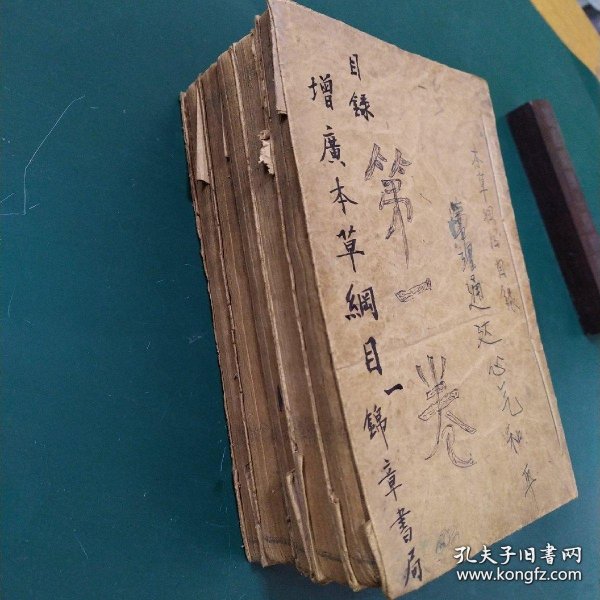 目錄
增廣本草綱目一錦章書局
第一卷
理通达心元和平
本草綱目目錄
孔夫子旧书网
www.kongfz.com